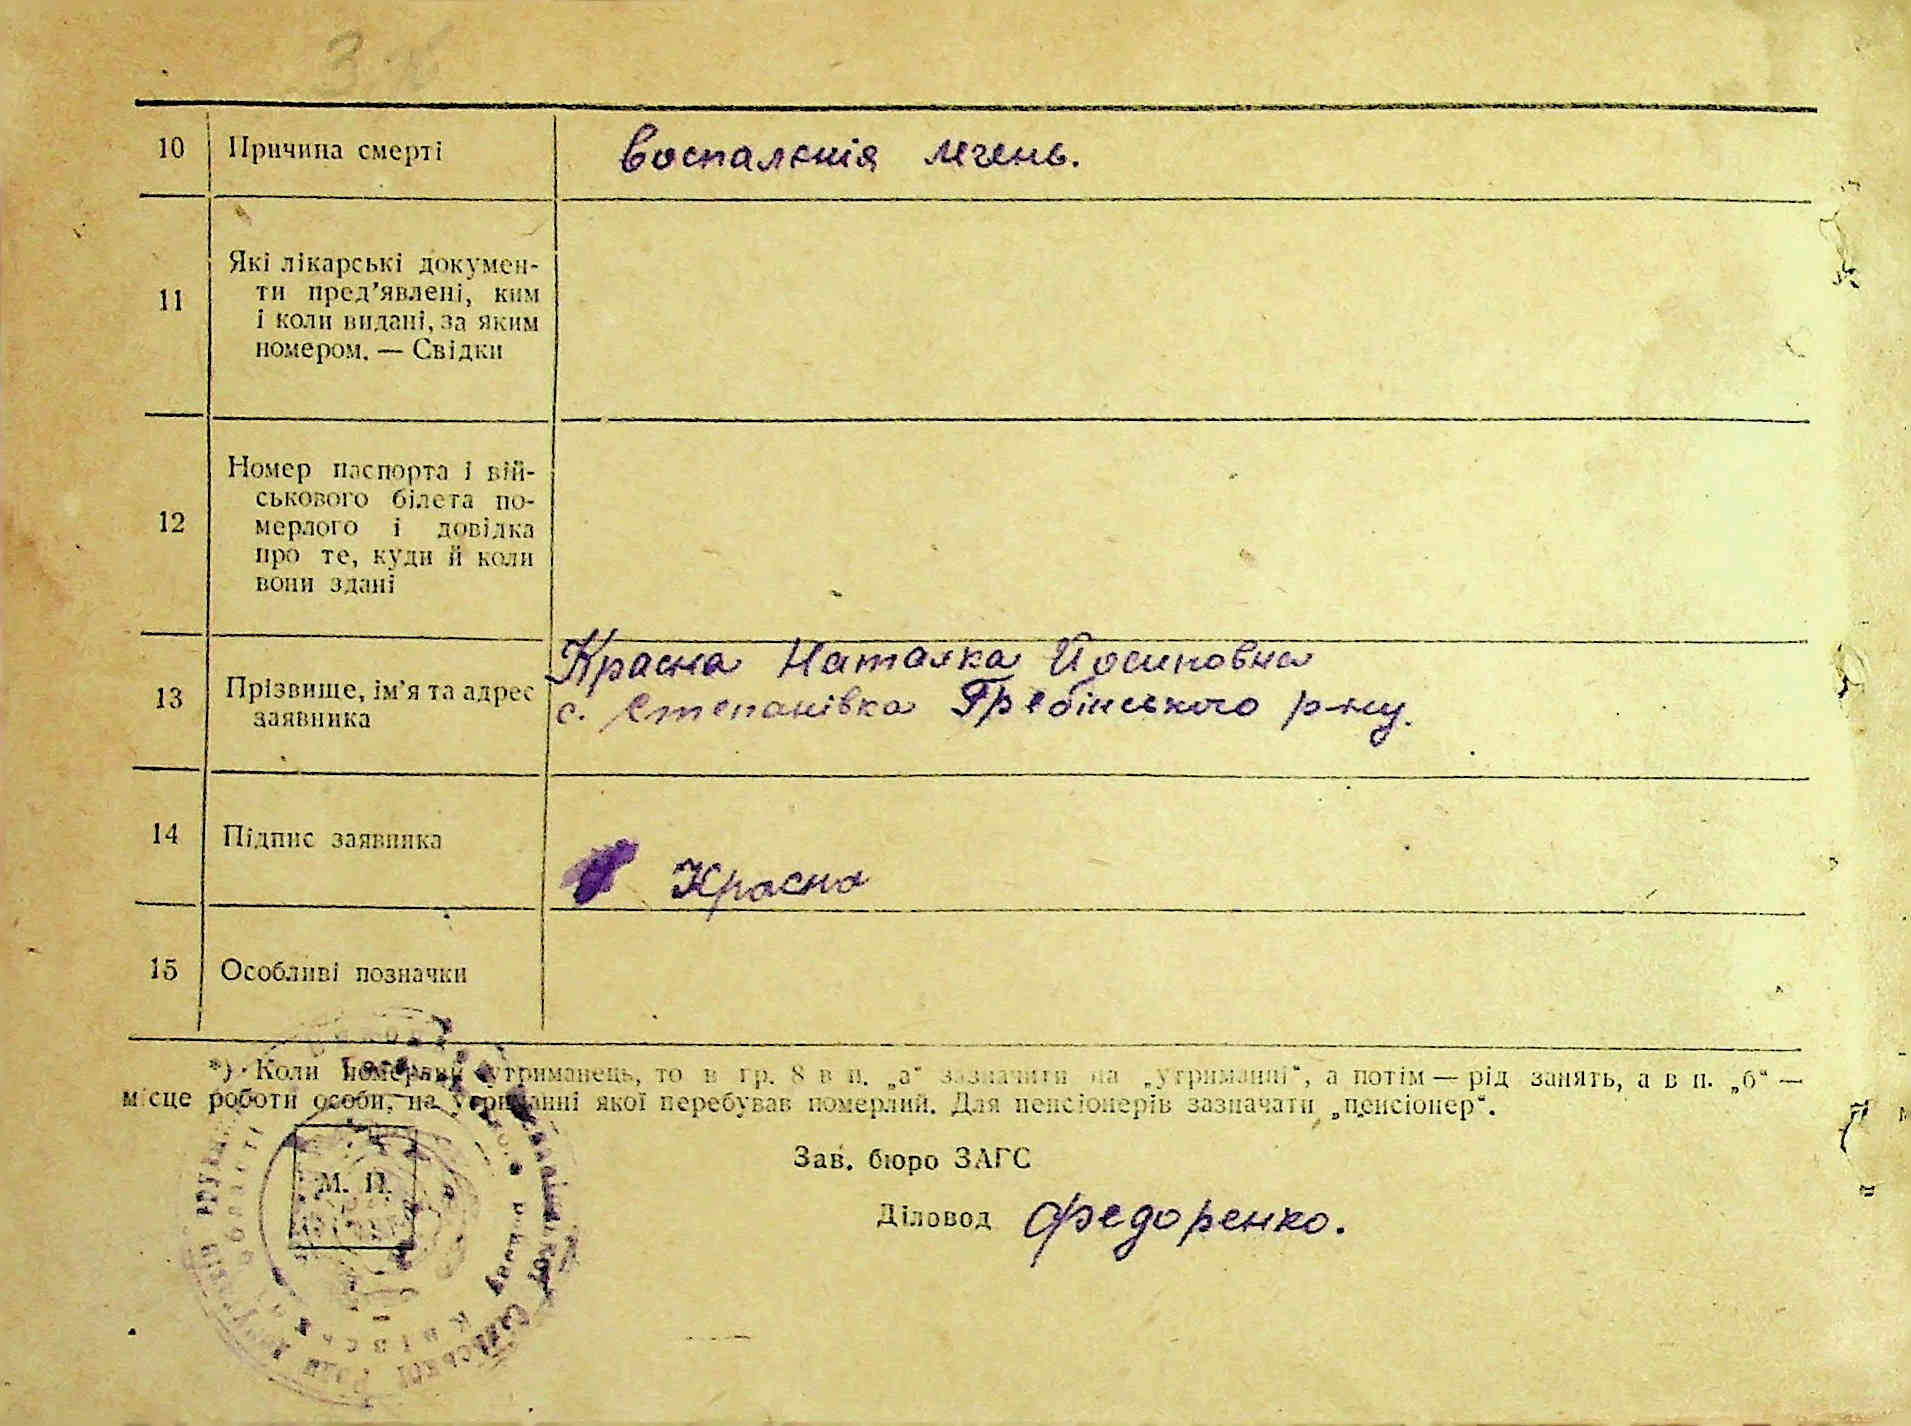 10 Причина смерті воспалєнія лєгень.
11 Які лікарські докумен-
ти пред'явлені, ким
і коли видані, за яким
номером. — Свідки
12 Номер паспорта і вій-
ськового білета по-
мерлого і довідка
про те, куди й коли
вони здані
13 Прізвище, ім'я та адрес
заявника
Красна Наталка Йосиповна
с. Степанівка Гребінського р-ну.
14 Підпис заявника Красна
15 Особливі позначки
*) Коли померлий утриманець, то в гр. 8 в п. „а“ зазначити на „утриманні“, а потім — рід занять, а в п. „б“ —
місце роботи особи, на утриманні якої перебував померлий. Для пенсіонерів зазначати „пенсіонер“.
Зав. бюро ЗАГС
М. П.
Діловод Федоренко.